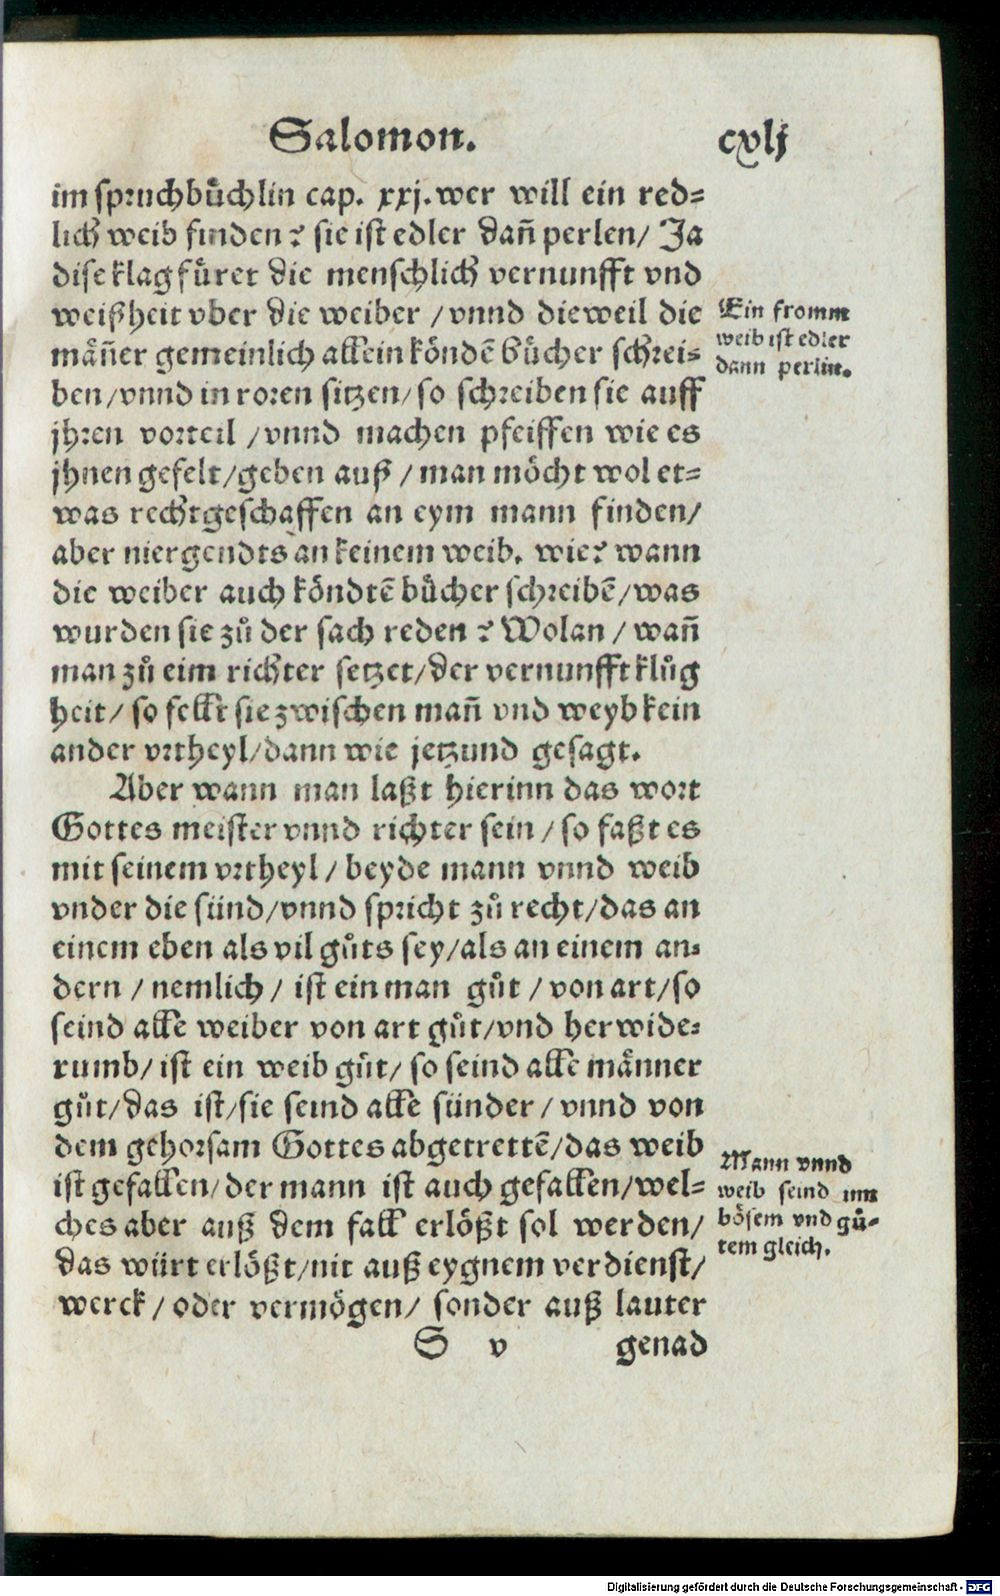 Salomon. cxlj
im spruchbuͤchlin cap. xxj. wer will ein red⸗
lich weib finden? sie ist edler dañ perlen/ Ja
dise klag fuͤret die menschlich vernunfft vnd
weißheit vber die weiber / vnnd dieweil die
maͤñer gemeinlich allein koͤndē buͤcher schrei⸗
ben/vnnd in roren sitzen/ so schreiben sie auff
jhren vorteil /vnnd machen pfeiffen wie es
jhnen gefelt/geben auß / man moͤcht wol et⸗
was rechtgeschaffen an eym mann finden/
aber niergendts an keinem weib. wie? wann
die weiber auch koͤndtē buͤcher schreibē/was
wurden sie zů der sach reden ? Wolan / wañ
man zů eim richter setzet/der vernunfft klůg
heit/ so fellt sie zwischen mañ vnd weyb kein
ander vrtheyl/dann wie jetzund gesagt.
Aber wann man laßt hierinn das wort
Gottes meister vnnd richter sein / so faßt es
mit seinem vrtheyl / beyde mann vnnd weib
vnder die sünd/vnnd spricht zů recht/das an
einem eben als vil gůts sey/als an einem an⸗
dern / nemlich / ist ein man gůt / von art/so
seind alle weiber von art gůt/vnd herwide⸗
rumb/ ist ein weib gůt/ so seind alle maͤnner
gůt/das ist/sie seind alle sünder / vnnd von
dem gehorsam Gottes abgetrettē/das weib
ist gefallen/ der mann ist auch gefallen/wel⸗
ches aber auß dem fall erloͤßt sol werden/
das würt erloͤßt/nit auß eygnem verdienst/
werck / oder vermoͤgen/ sonder auß lauter
S v genad
Ein fromm
weib ist edler
dann perlin.
Mann vnnd
weib seind im
boͤsem vnd gů⸗
tem gleich.
Digitalisierung gefördert durch die Deutsche Forschungsgemeinschaft - DFG